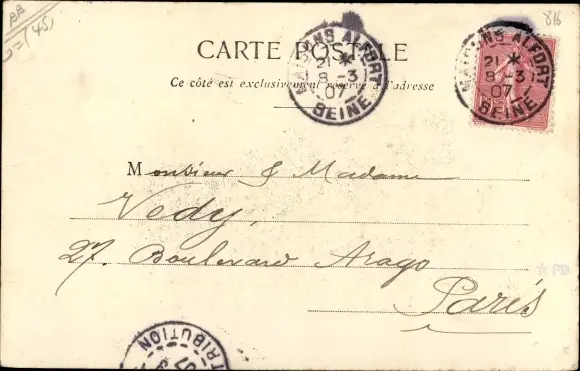 BB
(45)
816
CARTE POSTALE
Ce côté est exclusivement réservé à l'adresse
MAISONS ALFORT
21 *
8 - 3
07
SEINE
MAISONS ALFORT
21 *
8 - 3
07
SEINE
Monsieur & Madame
Vedy,
27. Boulevard Arago
Paris
PB
TRIBUTION
07